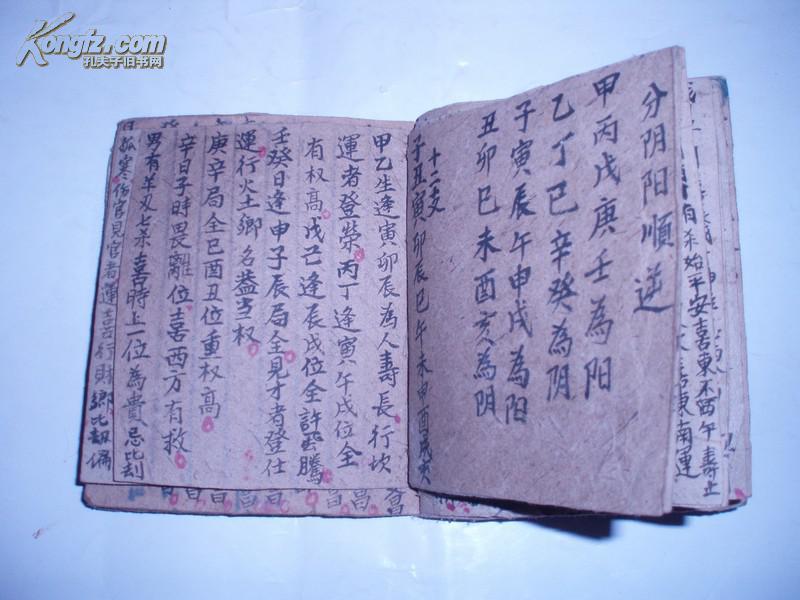 Kongfz.com
孔夫子旧书网
分阴阳順逆
甲丙戊庚壬為阳
乙丁巳辛癸為阴
子寅辰午申戌為阳
丑卯巳未酉亥為阴
十二支
子丑寅卯辰巳午未申酉戌亥
甲乙生逢寅卯辰為人壽長行坎
運者登榮丙丁逢寅午戌位全
有权高戊己逢辰戌位全許雲騰
壬癸日逢申子辰局全見才者登仕
運行火土鄉名益当权
庚辛局全巳酉丑位重权高
辛日子時畏離位喜西方有救
男有羊刃七杀喜時上一位為貴忌比刦
孤寒伤官見官者運喜行財鄉比劫偏
始平安喜東不西午壽止
喜東南運